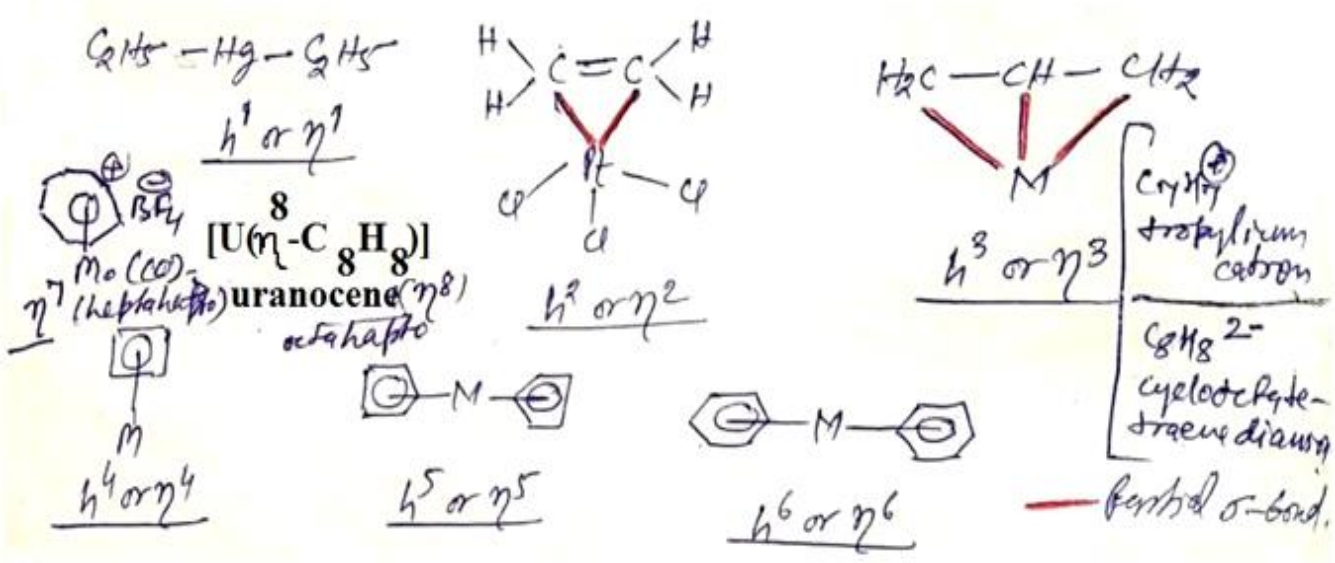 C2H5 – Hg – C2H5
h¹ or η¹
H H
C = C
H H
Pt
Cl Cl
Cl
h² or η²
H2C — CH — CH2
M
h³ or η³
C7H7 ⊕
tropylium
cation
C8H8 2-
cyclooctate-
traene dianion
⊕ ⊖
BF4
Mo(CO)
η⁷ (heptahapto)
8
[U(η-C 8 H 8)]
uranocene (η8)
octahapto
M
h⁴ or η⁴
M
h⁵ or η⁵
M
h⁶ or η⁶
— Partial σ-bond.